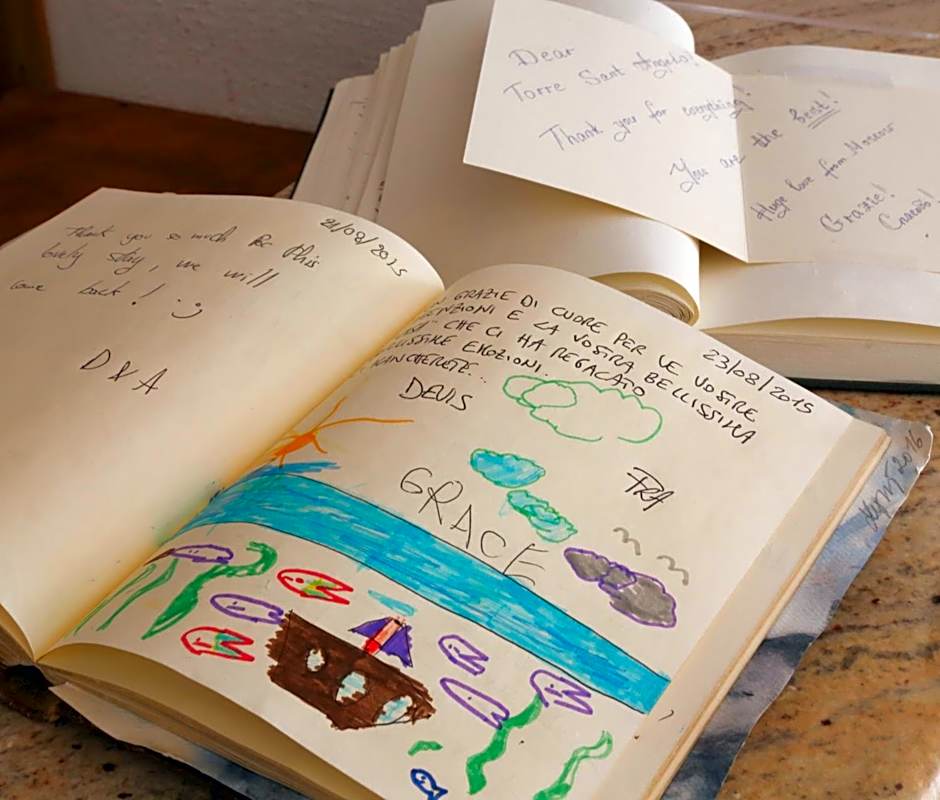 Dear
Torre Sant Angelo!
Thank you for everything!
You are the best!
Huge love from Moscow
Grazie!
21/08/2015
Thank you so much for this
lovely stay, we will
come back! :)
D & A
23/08/2015
GRAZIE DI CUORE PER LE VOSTRE
E LA VOSTRA BELLISSIMA
CHE CI HA REGALATO
EMOZIONI.
DEVIS
FRA
GRACE
2016